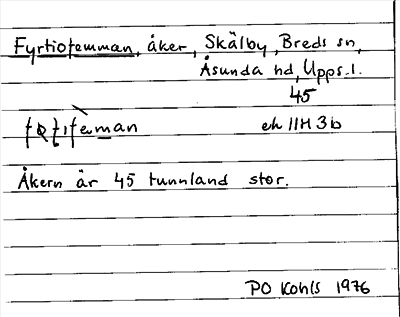 Fyrtiofemman, åker, Skälby, Breds sn,
Åsunda hd, Upps. l.
45
ek 11H 3b
Åkern är 45 tunnland stor.
PO Kohls 1976